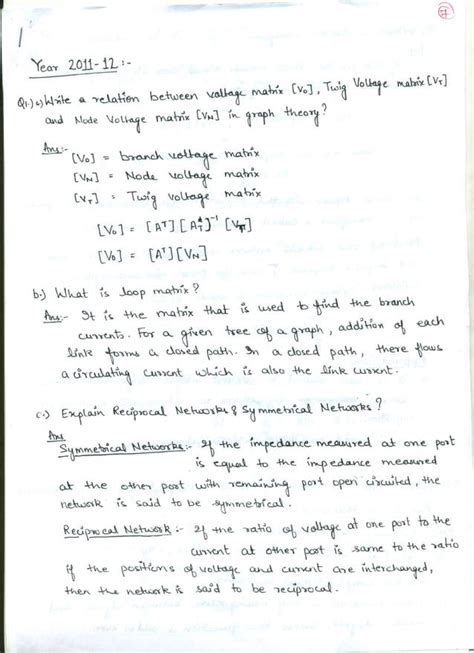 7
1
Year 2011-12 :-
Q1.) a) Write a relation between voltage matrix [Vb], Twig Voltage matrix [VT]
and Node Voltage matrix [VN] in graph theory?
Ans:-
[Vb] = branch voltage matrix
[VN] = Node voltage matrix
[VT] = Twig voltage matrix
[Vb] = [A^T] [A_T^T]^-1 [VT]
[Vb] = [A^T] [VN]
b.) What is loop matrix?
Ans:- It is the matrix that is used to find the branch
currents. For a given tree of a graph, addition of each
link forms a closed path. In a closed path, there flows
a circulating current which is also the link current.
c.) Explain Reciprocal Networks & Symmetrical Networks?
Ans
Symmetrical Networks:- If the impedance measured at one port
is equal to the impedance measured
at the other port with remaining port open circuited, the
network is said to be symmetrical.
Reciprocal Network:- If the ratio of voltage at one port to the
current at other port is same to the ratio
if the positions of voltage and current are interchanged,
then the network is said to be reciprocal.